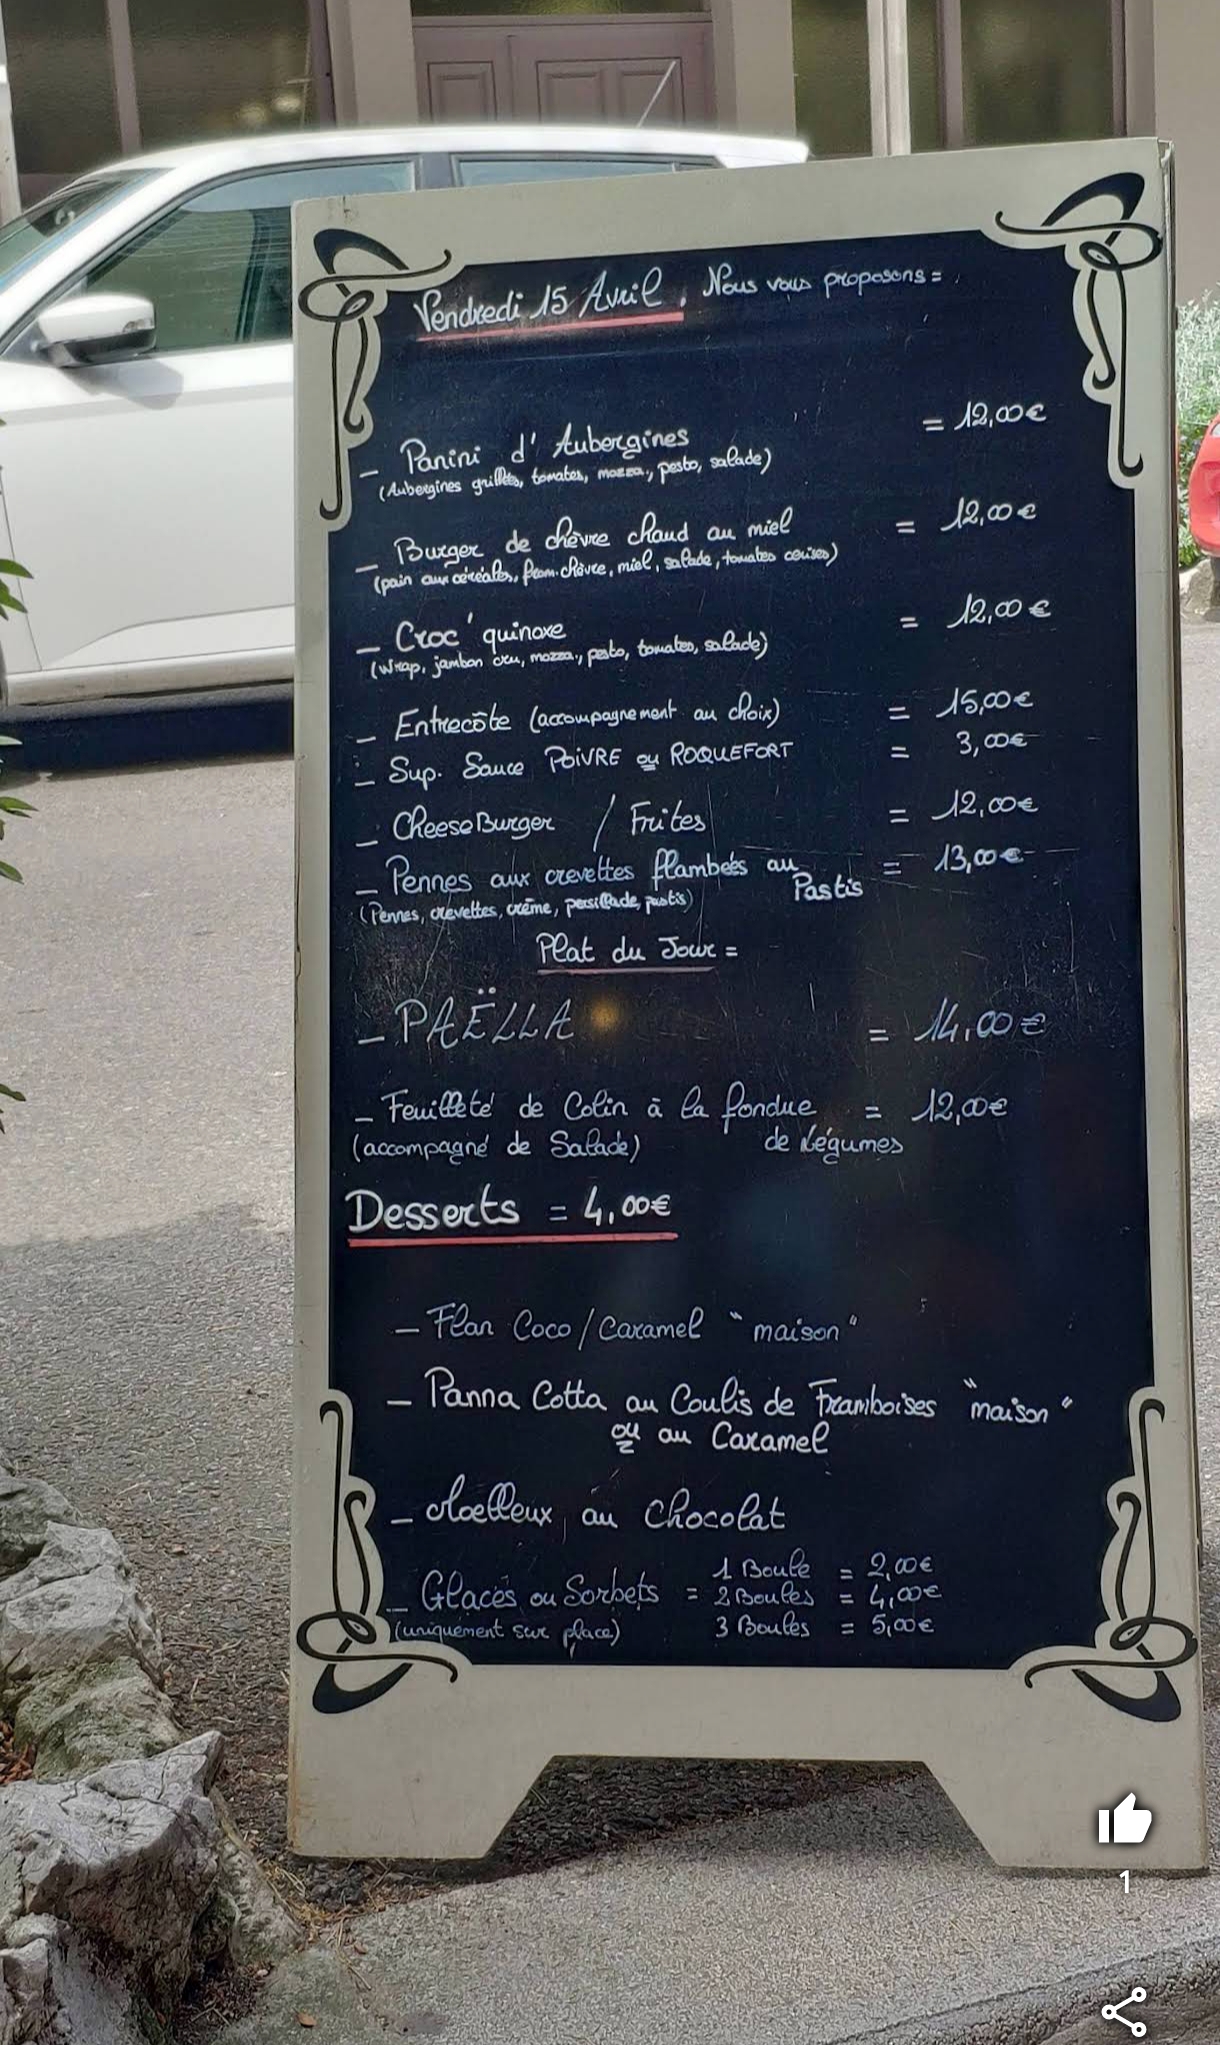 Vendredi 15 Avril. Nous vous proposons =
_ Panini d'Aubergines = 12,00€
(Aubergines grillées, tomates, mozza., pesto, salade)
_ Burger de chèvre chaud au miel = 12,00€
(pain aux céréales, from. chèvre, miel, salade, tomates cerises)
_ Croc'quinoxe = 12,00€
(Wrap, jambon cru, mozza., pesto, tomates, salade)
_ Entrecôte (accompagnement au choix) = 15,00€
_ Sup. Sauce POIVRE ou ROQUEFORT = 3,00€
_ CheeseBurger / Frites = 12,00€
_ Pennes aux crevettes flambées au = 13,00€
Pastis
(Pennes, crevettes, crème, persillade, pastis)
Plat du Jour =
_ PAËLLA = 14,00€
_ Feuilleté de Colin à la fondue = 12,00€
(accompagné de Salade) de Légumes
Desserts = 4,00€
_ Flan Coco/Caramel "maison"
_ Panna Cotta au Coulis de Framboises "maison"
ou au Caramel
_ Moelleux au Chocolat
1 Boule = 2,00€
_ Glaces ou Sorbets = 2 Boules = 4,00€
(uniquement sur place) 3 Boules = 5,00€
1